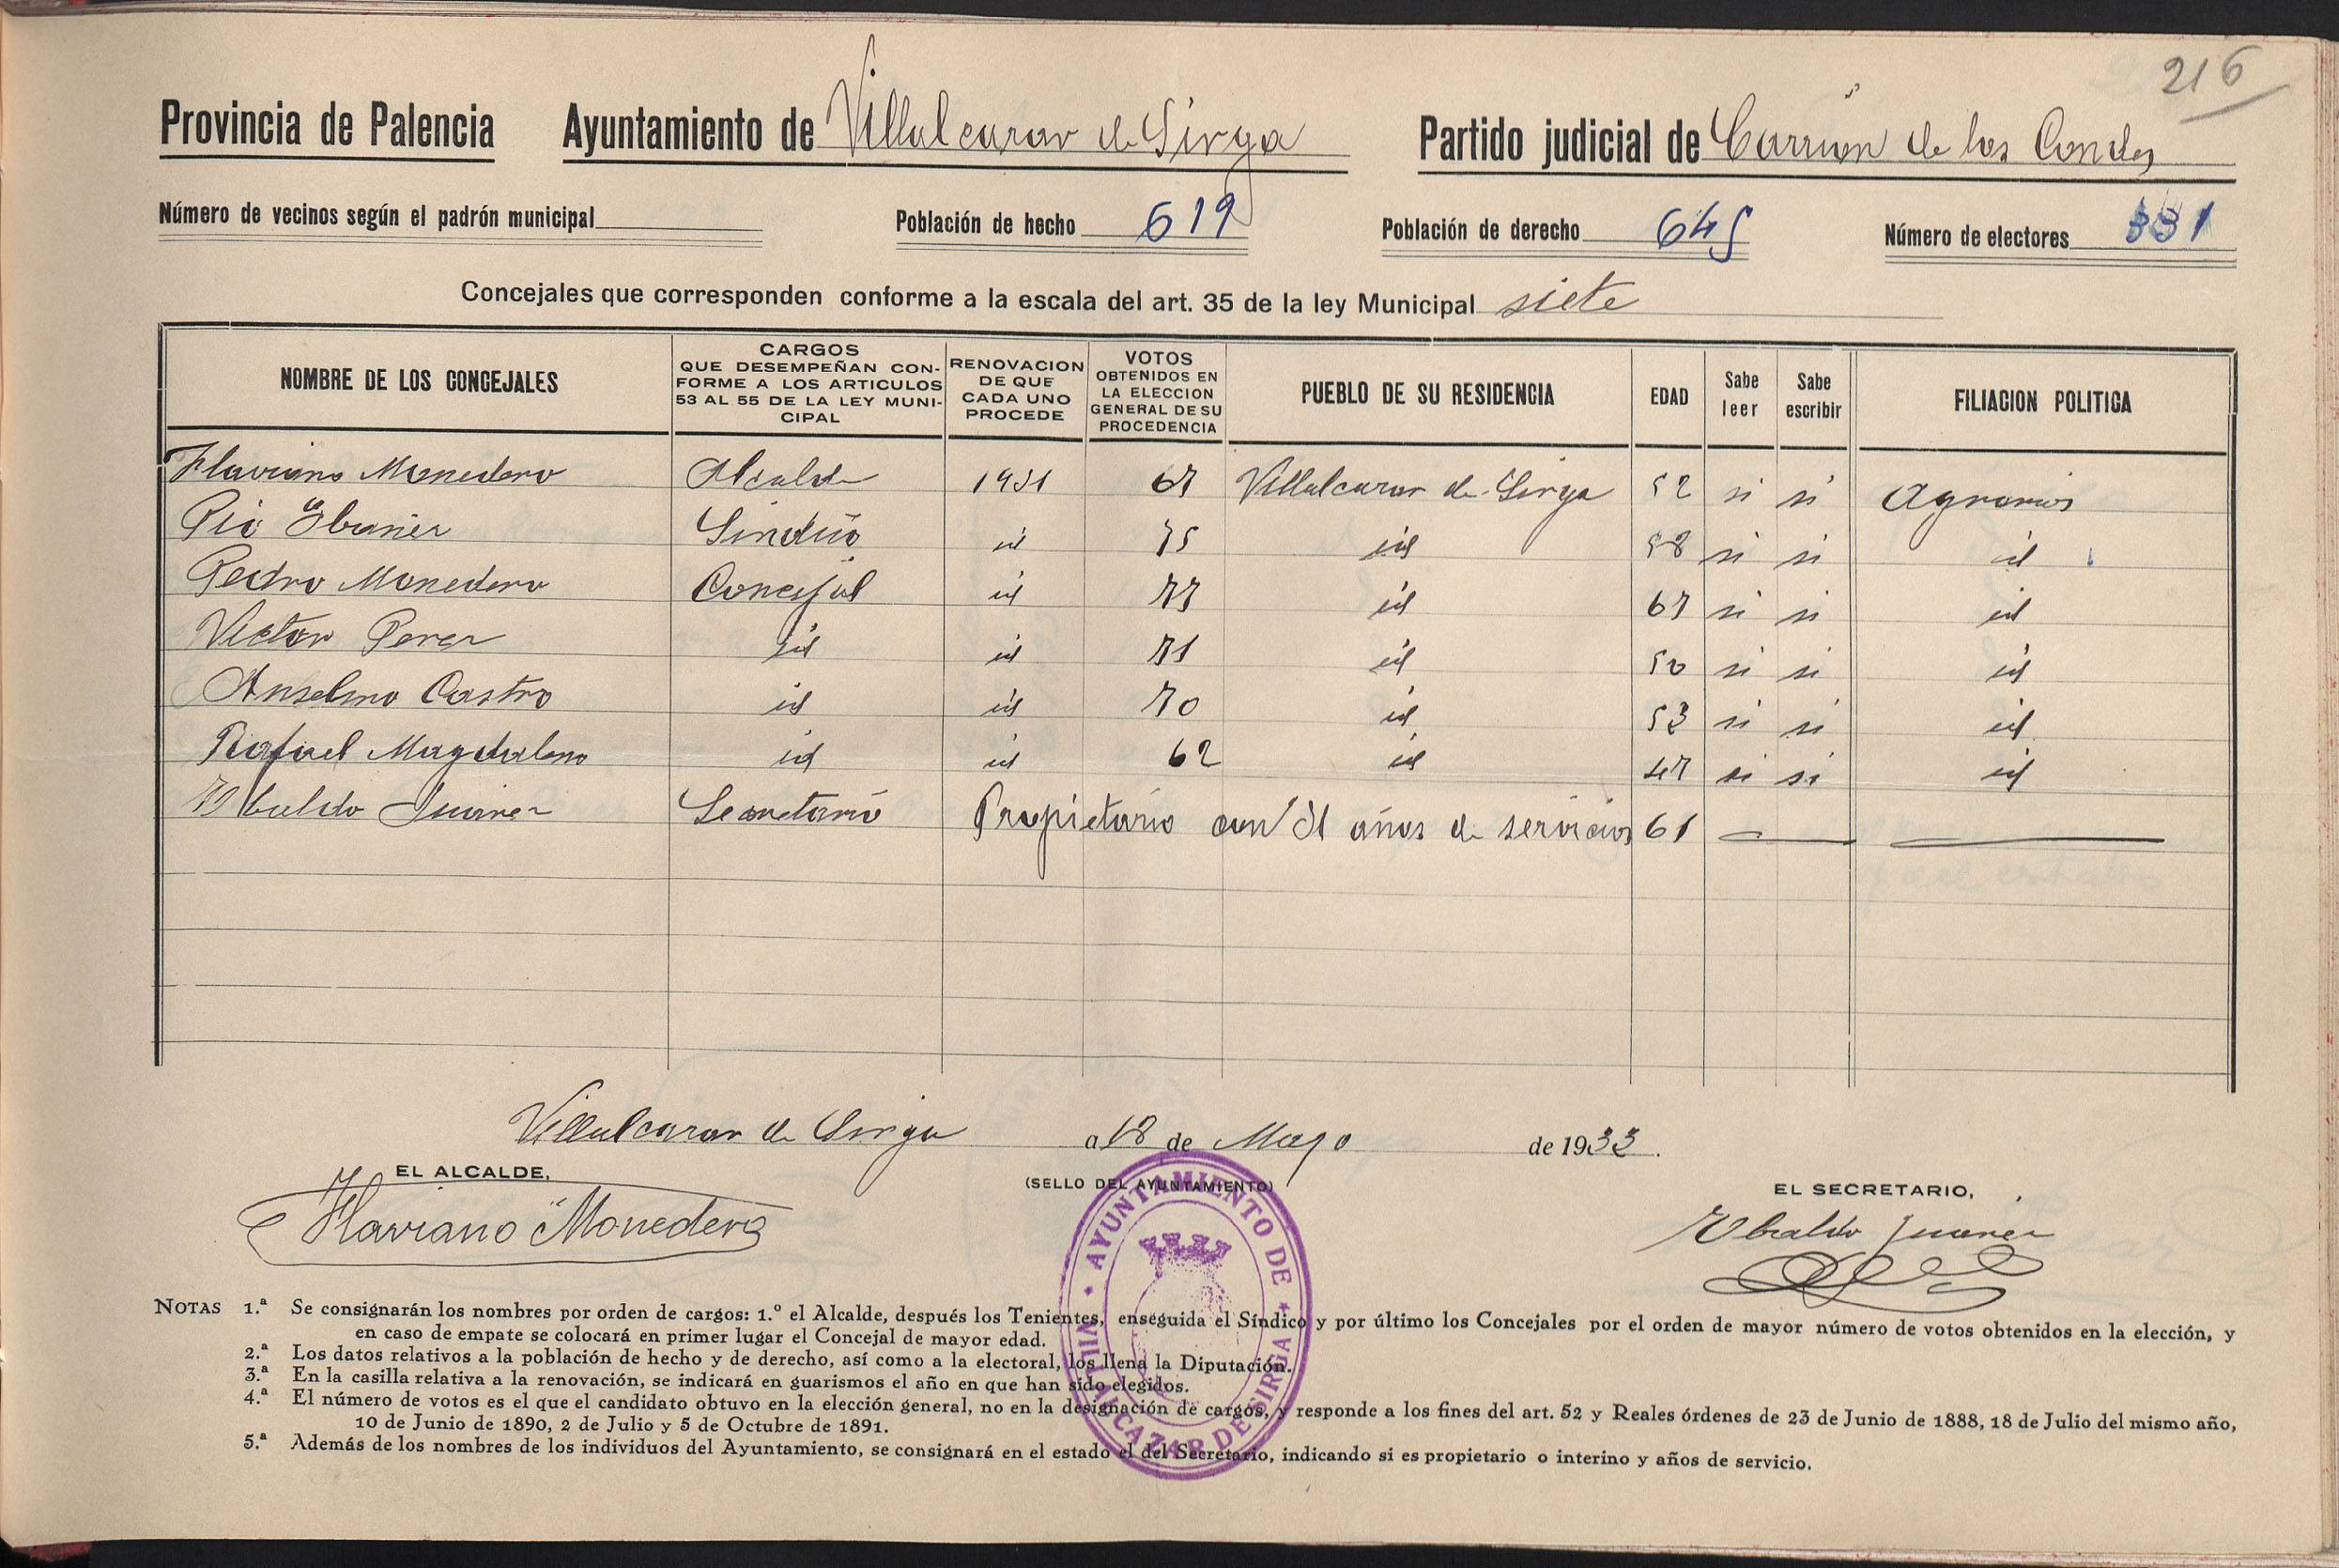 216
Provincia de Palencia Ayuntamiento de Villalcazar de Sirga Partido judicial de Carrion de los Condes
Número de vecinos según el padrón municipal Población de hecho 619 Población de derecho 645 Número de electores 331
Concejales que corresponden conforme a la escala del art. 35 de la ley Municipal siete
NOMBRE DE LOS CONCEJALES
CARGOS
QUE DESEMPEÑAN CON-
FORME A LOS ARTICULOS
53 AL 55 DE LA LEY MUNI-
CIPAL
RENOVACION
DE QUE
CADA UNO
PROCEDE
VOTOS
OBTENIDOS EN
LA ELECCION
GENERAL DE SU
PROCEDENCIA
PUEBLO DE SU RESIDENCIA
EDAD
Sabe
leer
Sabe
escribir
FILIACION POLITICA
Flaviano Monedero Alcalde 1931 67 Villalcazar de Sirga 52 si si Agrarios
Pio Ibañez Sindico id 75 id 58 si si id
Pedro Monedero Concejal id 77 id 67 si si id
Victor Perez id id 71 id 50 si si id
Anselmo Castro id id 70 id 53 si si id
Rafael Magdaleno id id 62 id 47 si si id
Ubaldo Juarez Secretario Propietario con 31 años de servicios 61
Villalcazar de Sirga a 18 de Mayo de 1933.
EL ALCALDE,
(SELLO DEL AYUNTAMIENTO)
EL SECRETARIO,
Flaviano Monedero
Ubaldo Juarez
AYUNTAMIENTO DE VILLALCAZAR DE SIRGA
NOTAS 1.ª Se consignarán los nombres por orden de cargos: 1.º el Alcalde, después los Tenientes, enseguida el Síndico y por último los Concejales por el orden de mayor número de votos obtenidos en la elección, y
en caso de empate se colocará en primer lugar el Concejal de mayor edad.
2.ª Los datos relativos a la población de hecho y de derecho, así como a la electoral, los llena la Diputación.
3.ª En la casilla relativa a la renovación, se indicará en guarismos el año en que han sido elegidos.
4.ª El número de votos es el que el candidato obtuvo en la elección general, no en la designación de cargos, y responde a los fines del art. 52 y Reales órdenes de 23 de Junio de 1888, 18 de Julio del mismo año,
10 de Junio de 1890, 2 de Julio y 5 de Octubre de 1891.
5.ª Además de los nombres de los individuos del Ayuntamiento, se consignará en el estado el del Secretario, indicando si es propietario o interino y años de servicio.